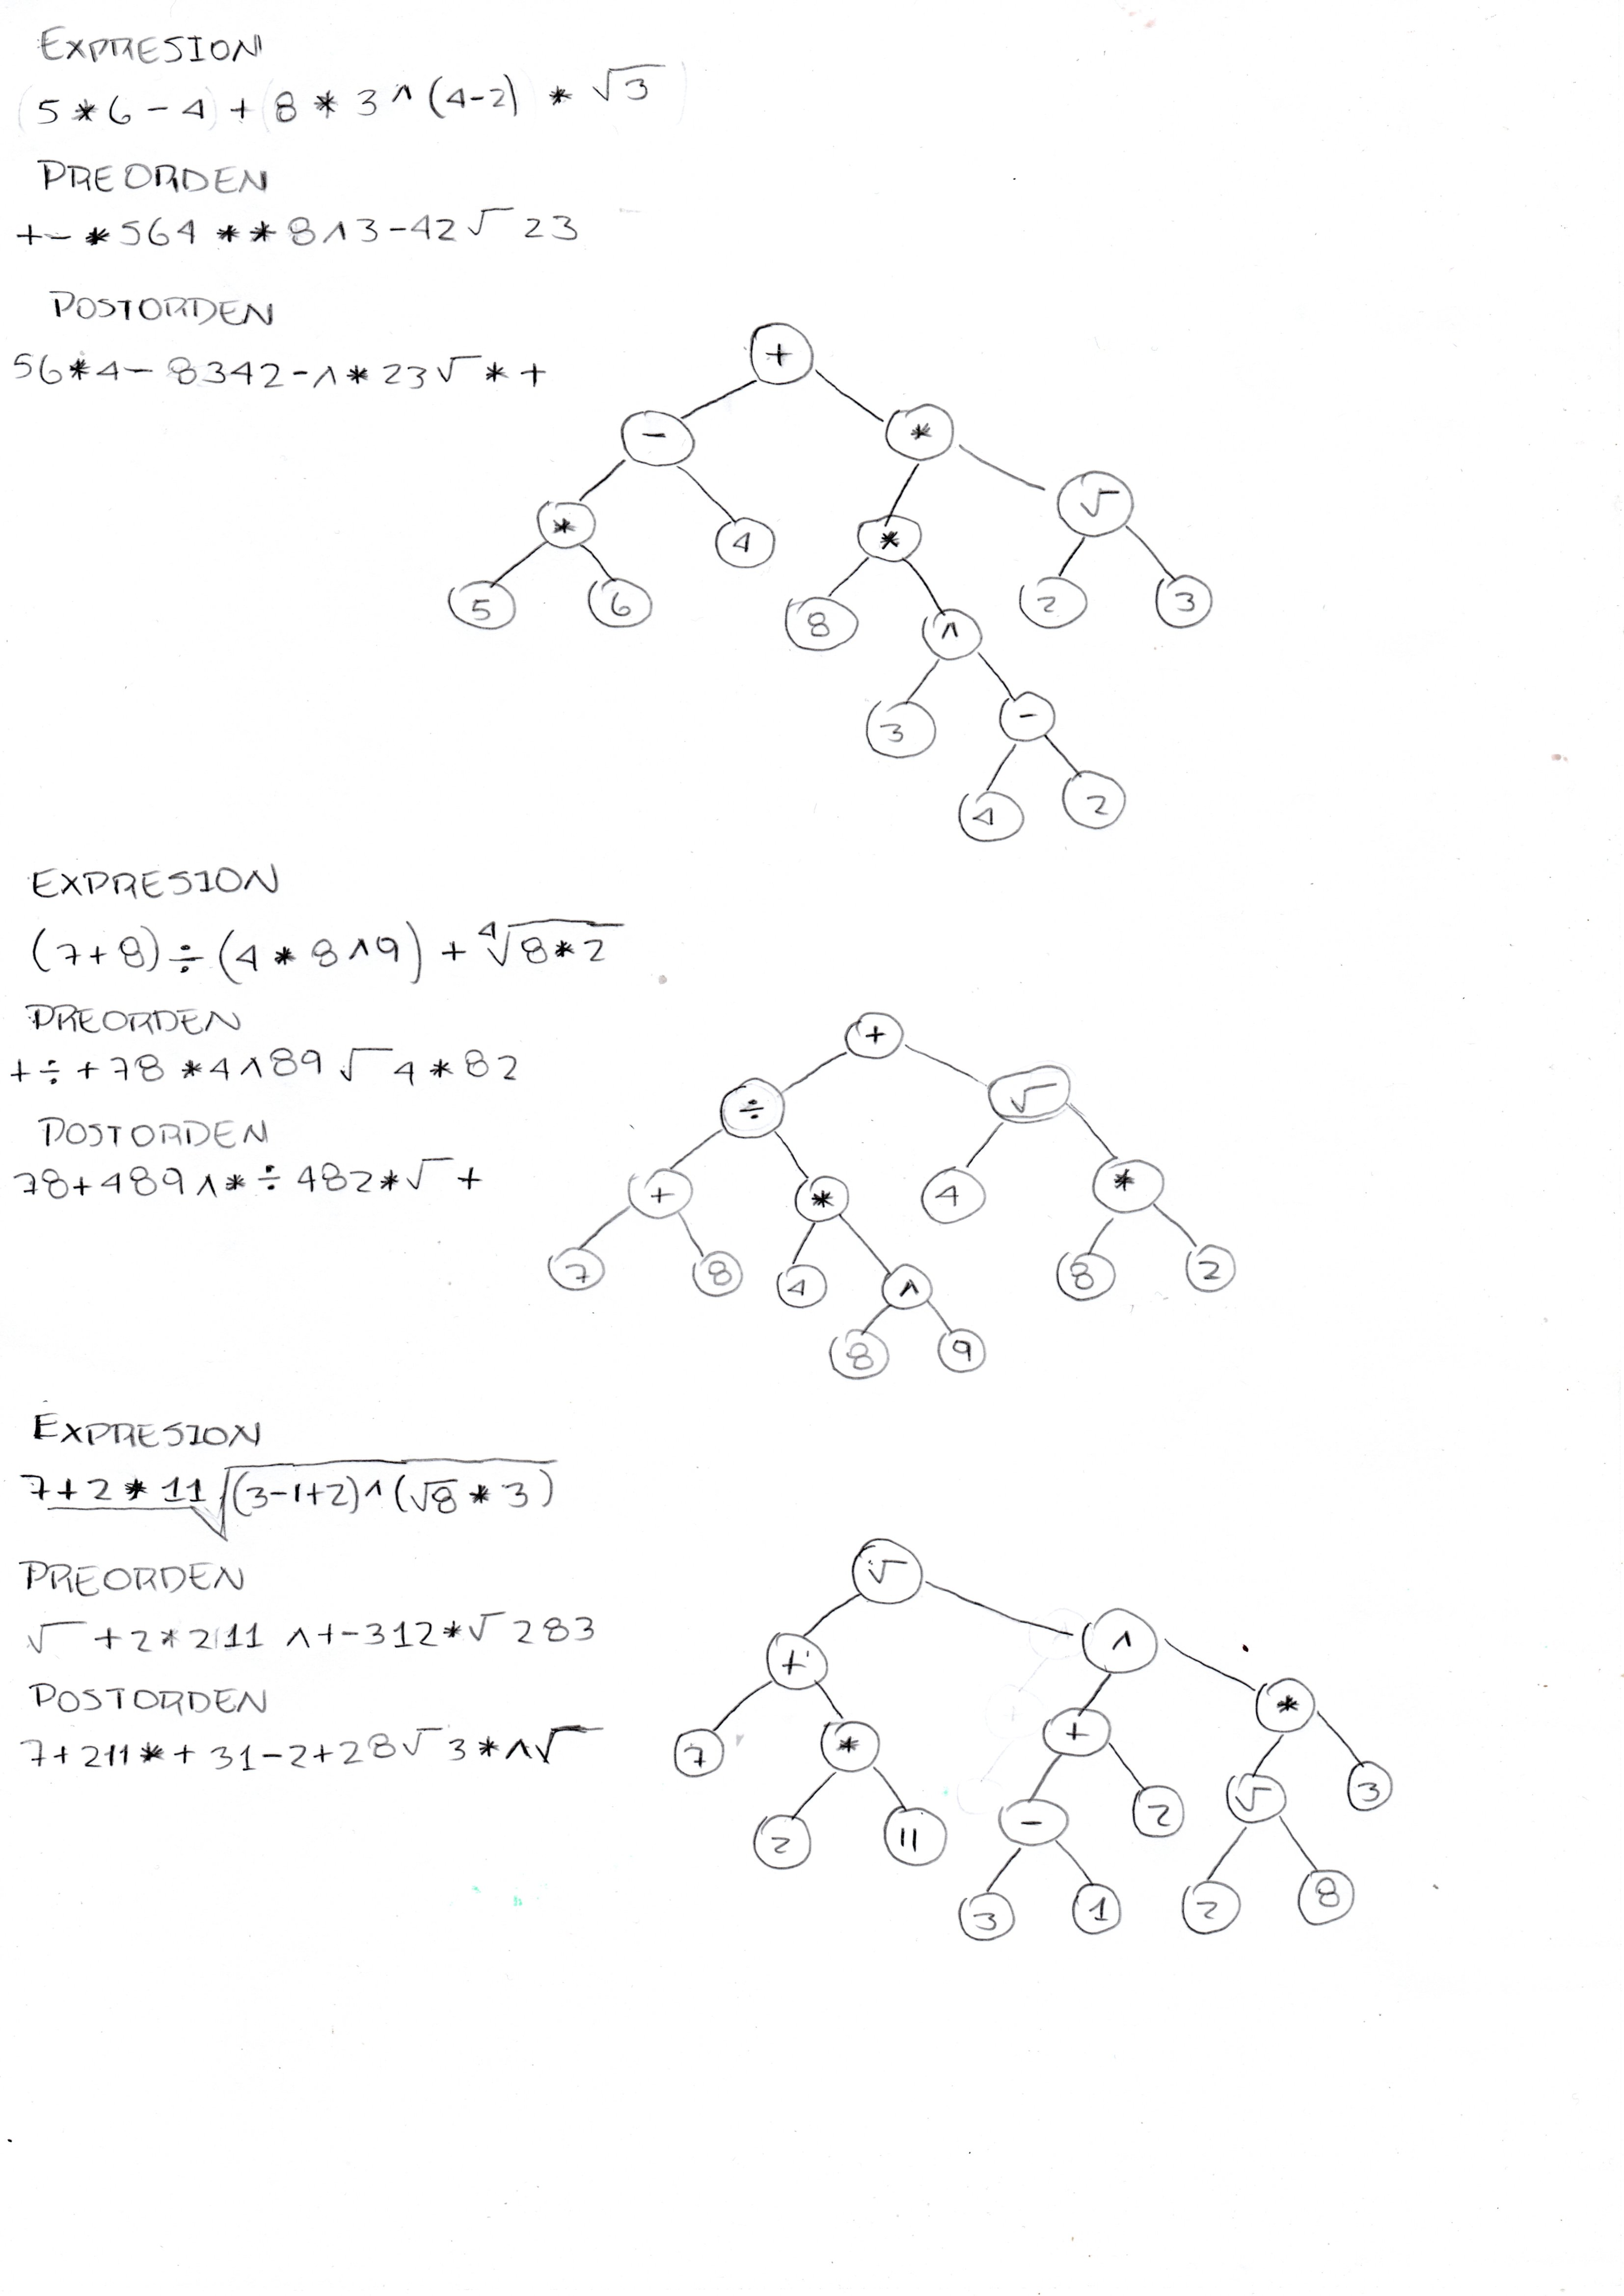 EXPRESION
(5*6-4)+(8*3^(4-2)*√3)
PREORDEN
+-*564**8^3-42√23
POSTORDEN
56*4-8342-^*23√*+
+
- *
* 4 * √
5 6 8 ^ 2 3
3 -
4 2
EXPRESION
(7+8)÷(4*8^9)+⁴√8*2
PREORDEN
+÷+78*4^89√4*82
POSTORDEN
78+489^*÷482*√+
+
÷ √
+ * 4 *
7 8 4 ^ 8 2
8 9
EXPRESION
7+2*11√(3-1+2)^(√8*3)
PREORDEN
√+2*211^+-312*√283
POSTORDEN
7+211*+31-2+28√3*^√
√
+ ^
7 * + *
2 11 - 2 √ 3
3 1 2 8